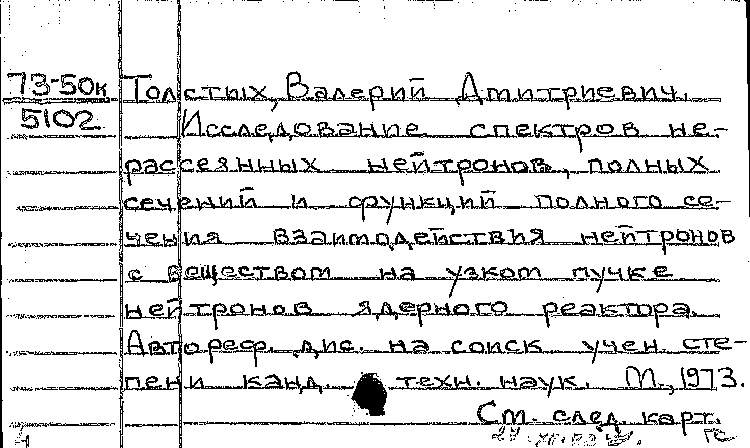 73-50к Толстых, Валерий Дмитриевич.
5102 Исследование спектров не-
рассеянных нейтронов, полных
сечений и функций полного се-
чения взаимодействия нейтронов
с веществом на узком пучке
нейтронов ядерного реактора.
Автореф. дис. на соиск учен. сте-
пени канд. техн. наук. М., 1973.
См. след. карт.